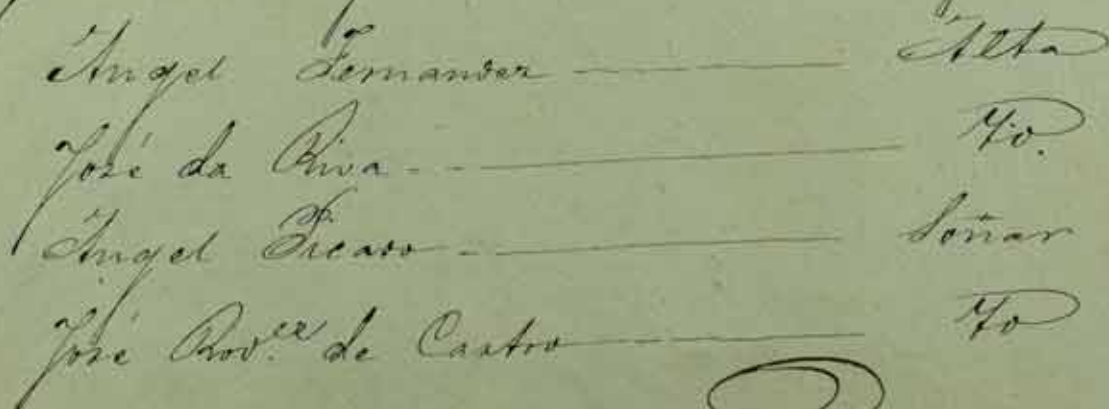 Ángel Fernandez Alta
José da Riva Yo.
Ángel Picado Soñar
José Rod.ez de Castro Yo